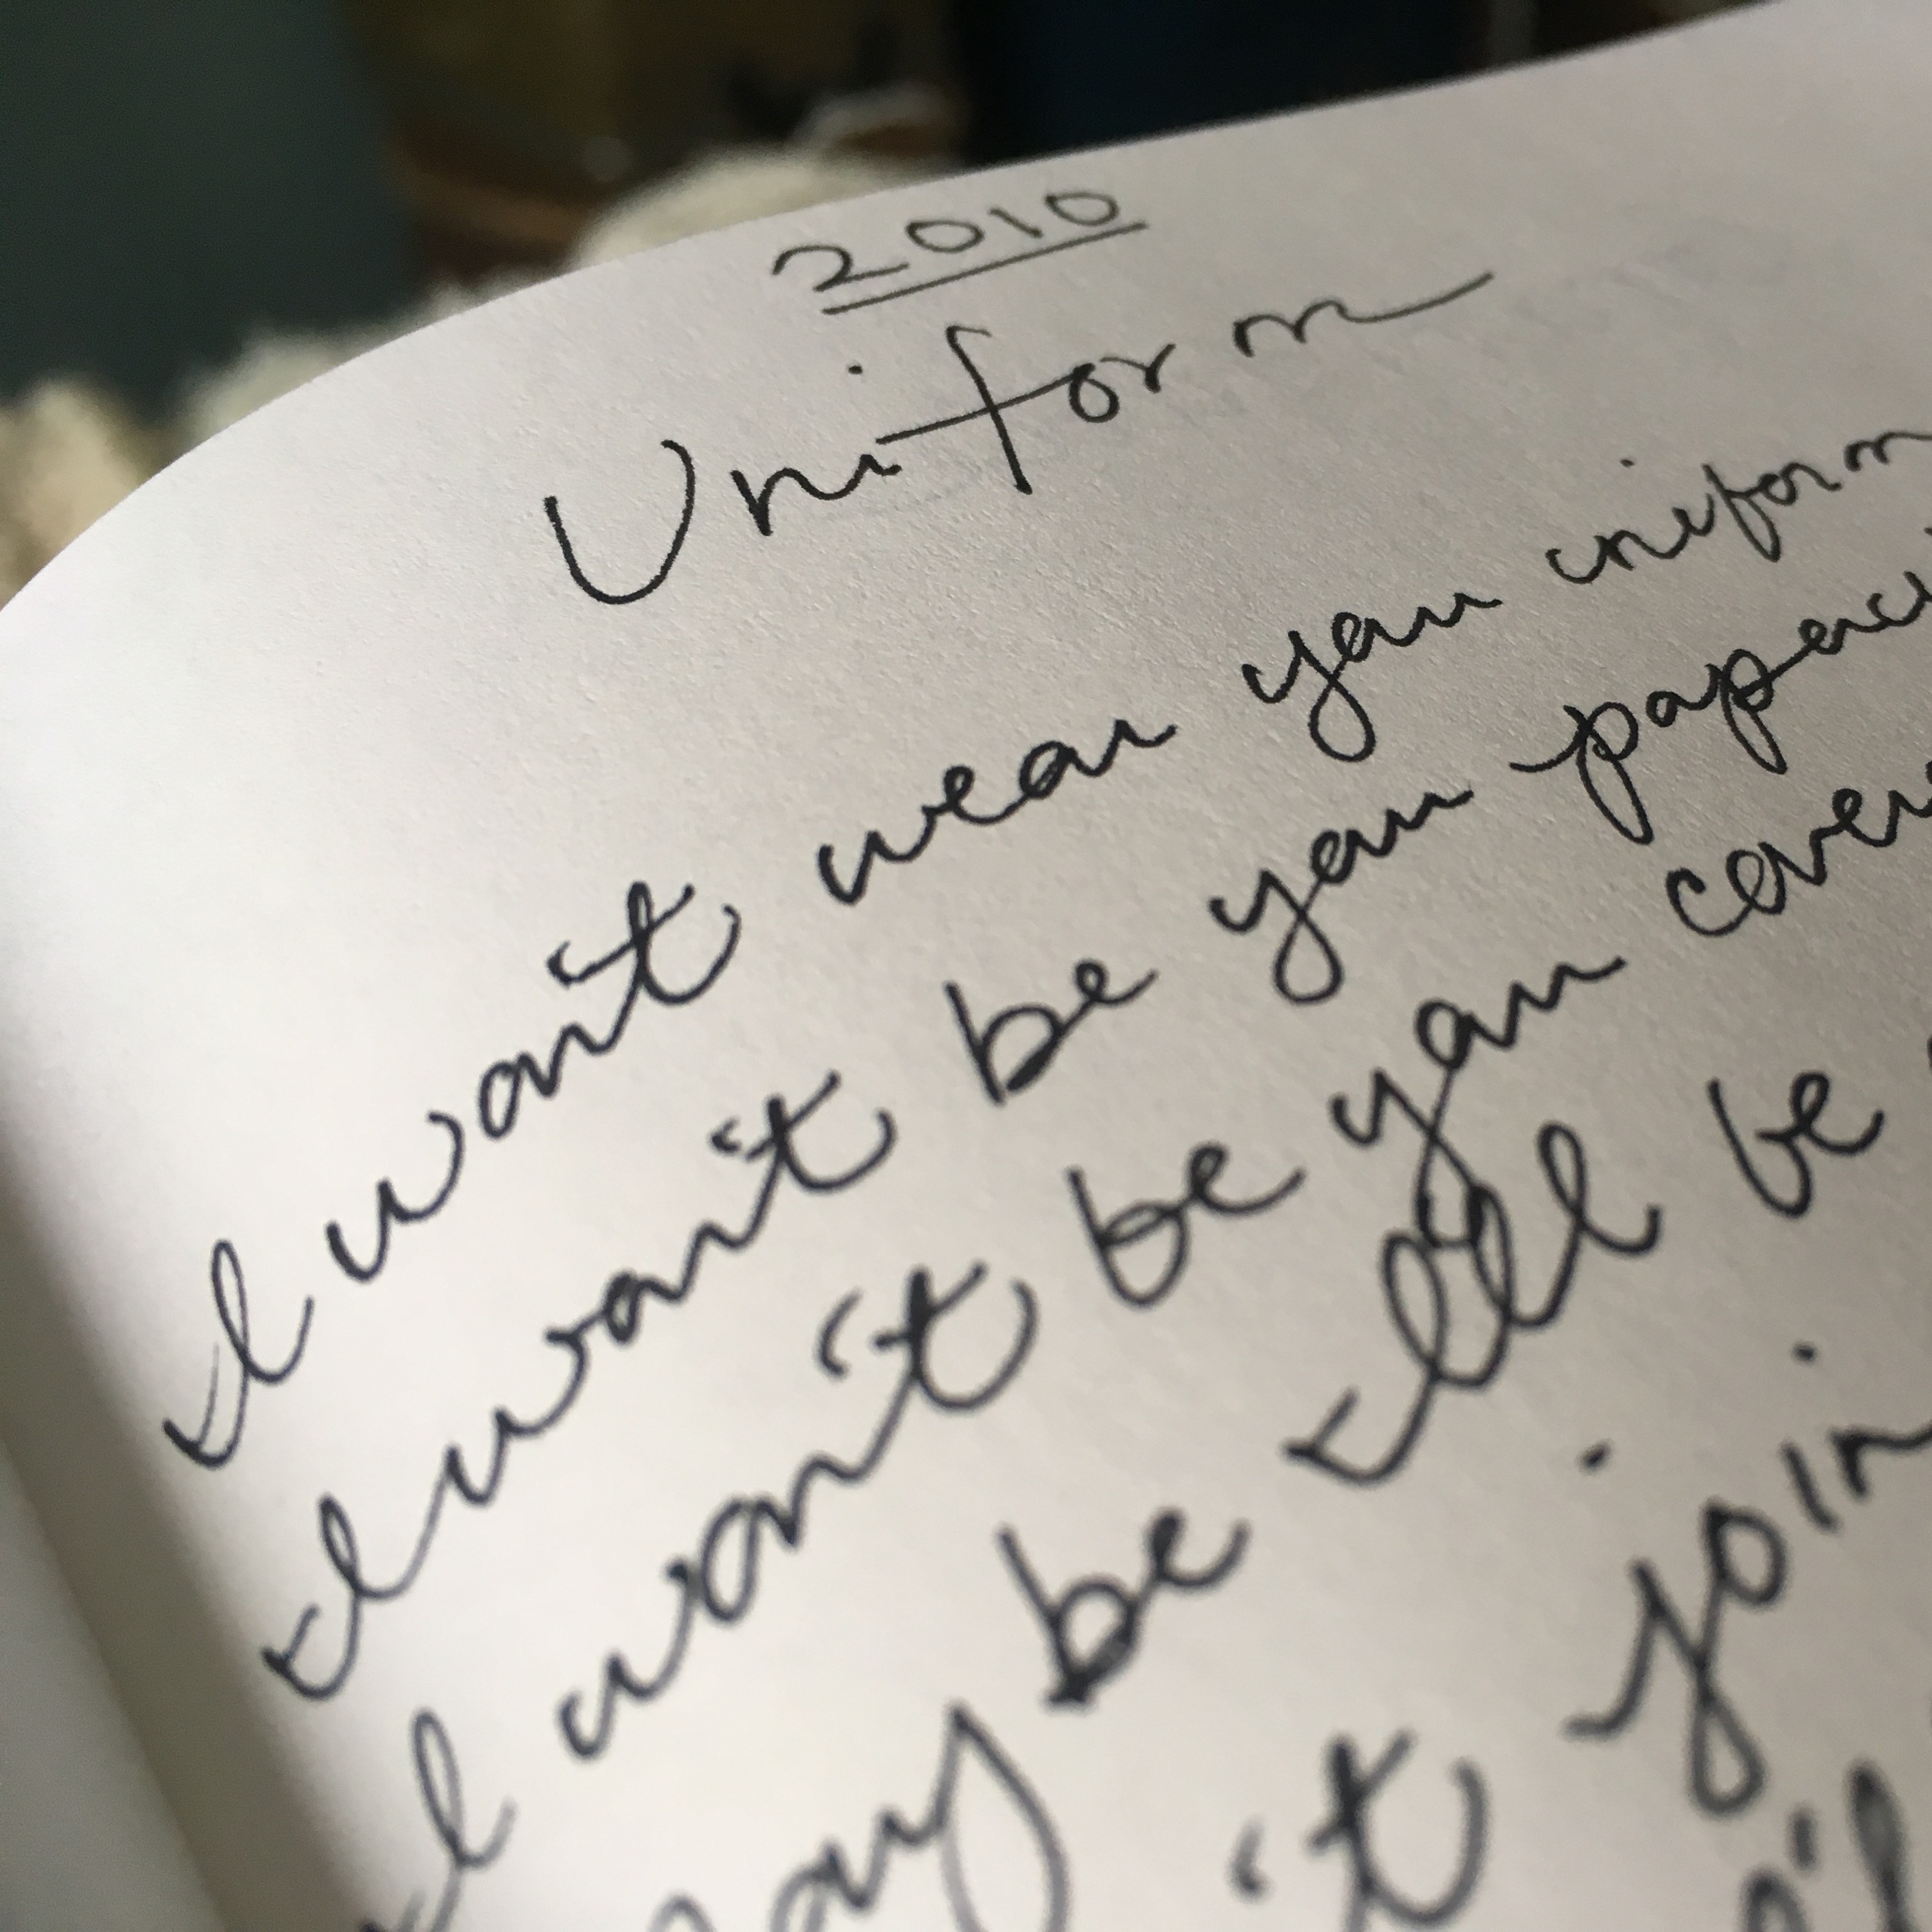 2010
Uniform
I won't wear your uniform
I won't be your
I won't be your
be I'll be
't join